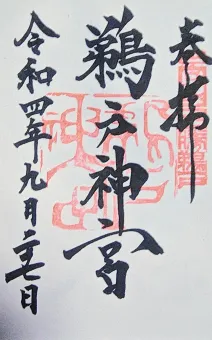 奉拝
鵜戸神宮
令和四年九月二十七日